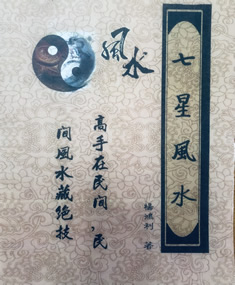 七星風水
楊維利 著
風水
高手在民间,民
间風水藏绝技